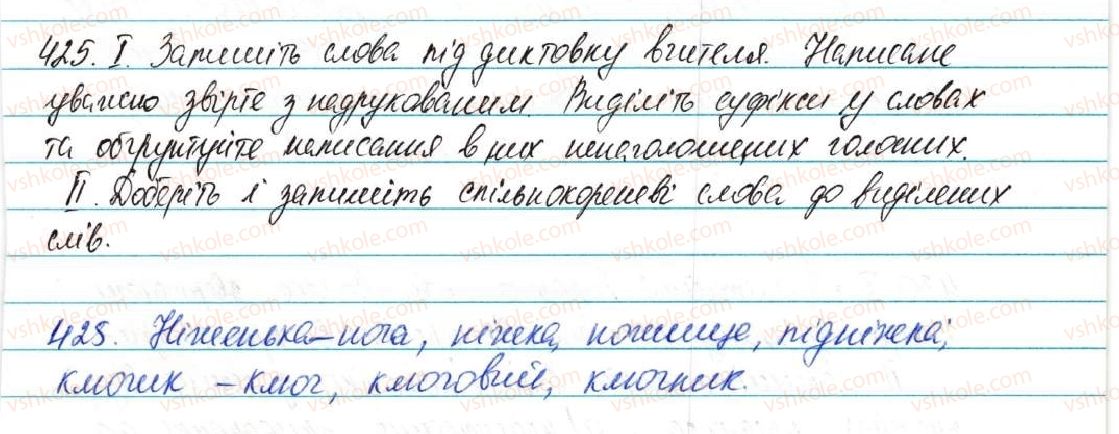 425. I. Запишіть слова під диктовку вчителя. Написане
уважно звірте з надрукованим. Виділіть суфікси у словах
та обґрунтуйте написання в них ненаголошених голосних.
II. Доберіть і запишіть спільнокореневі слова до виділених
слів.
425. Ніженька – нога, ніжка, ножище, підніжка;
клюгик – клюг, клюговий, клюгник.